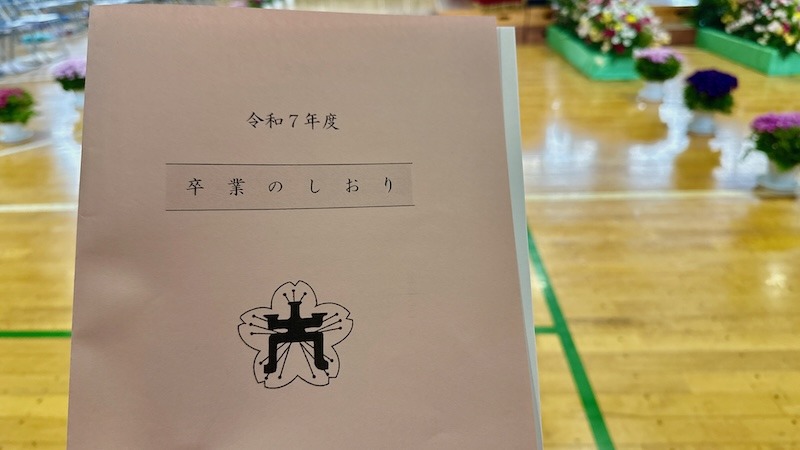 令和７年度
卒業のしおり